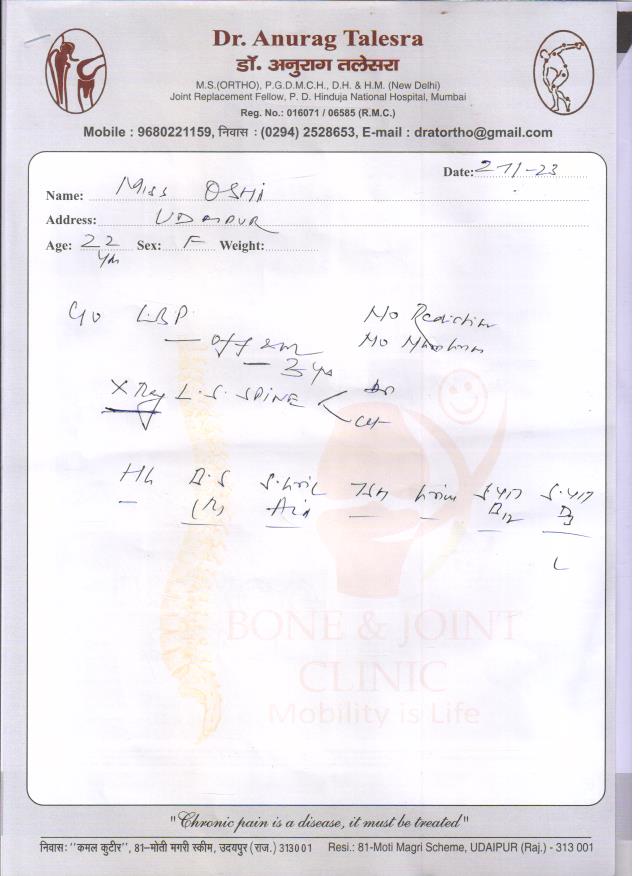 Dr. Anurag Talesra
डॉ. अनुराग तलेसरा
M.S.(ORTHO), P.G.D.M.C.H., D.H. & H.M. (New Delhi)
Joint Replacement Fellow, P. D. Hinduja National Hospital, Mumbai
Reg. No.: 016071 / 06585 (R.M.C.)
Mobile : 9680221159, निवास : (0294) 2528653, E-mail : dratortho@gmail.com
Date: 2-11-23
Name: Miss OSHI
Address: UDAIPUR
Age: 22 yrs Sex: F Weight:
LBP No Radiation
No
X Ray L.S. SPINE AP
Hb B.S S. Uric TSH S.VIT S.VIT
(R) Acid B12 D3
BONE & JOINT
CLINIC
Mobility is Life
"Chronic pain is a disease, it must be treated"
निवास: "कमल कुटीर", 81-मोती मगरी स्कीम, उदयपुर (राज.) 313001 Resi.: 81-Moti Magri Scheme, UDAIPUR (Raj.) - 313 001